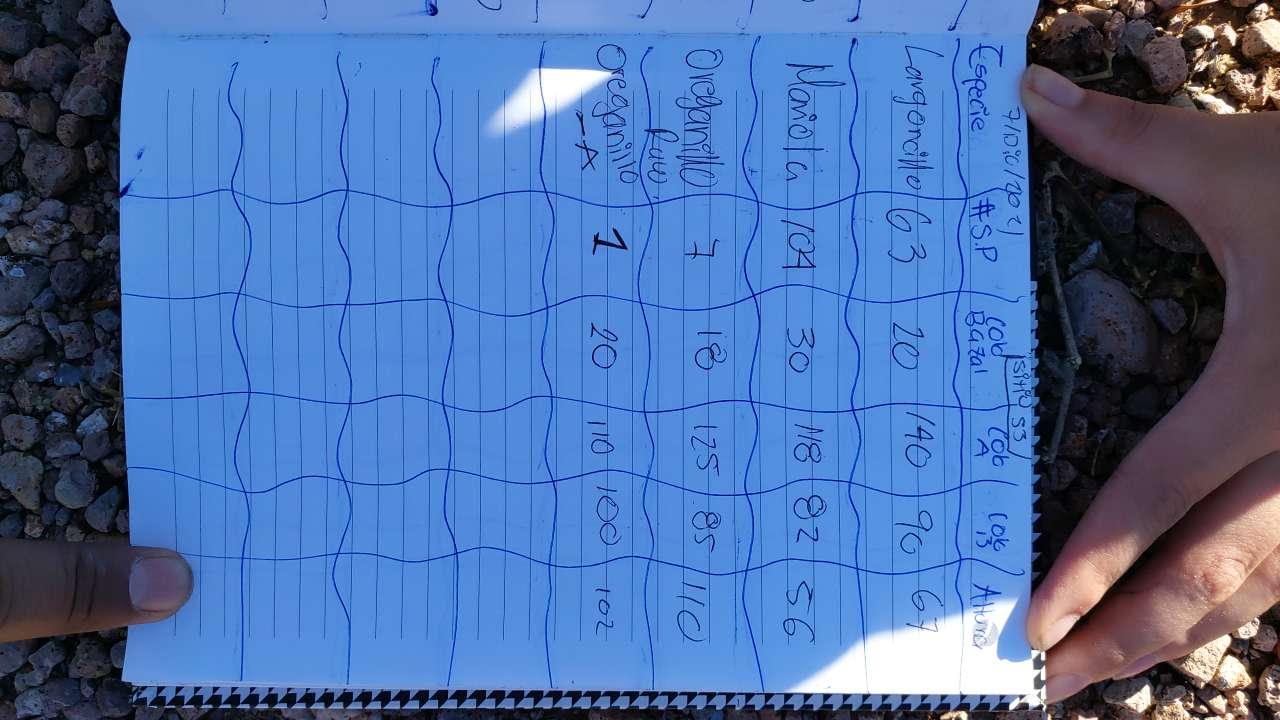 7/10/2021 Sitio S3
Especie # S.P Cob Bazal Cob A Cob B Altura
Largoncillo 63 20 140 90 67
Mariola 104 30 118 82 56
Oreganillo 7 18 125 85 110
Oreganillo -A 1 20 110 100 102